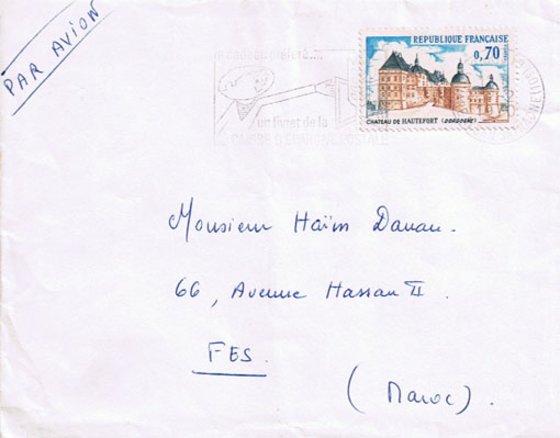 PAR AVION
REPUBLIQUE FRANÇAISE
0,70
CHATEAU DE HAUTEFORT (DORDOGNE)
un livret de la
CAISSE D'EPARGNE POSTALE
Monsieur Haïm Danan.
66, Avenue Hassan II.
FES.
(Maroc).